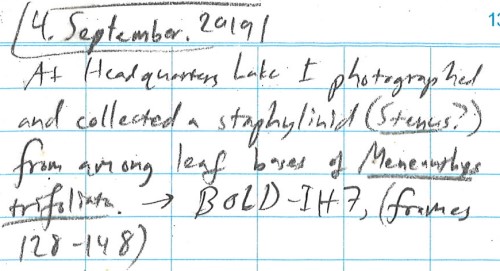 4. September. 2019
13
At Headquarters Lake I photographed
and collected a staphylinid (Stenus?)
from among leaf bases of Menyanthes
trifoliata. → BOLD-IH7, (frames
128-148)